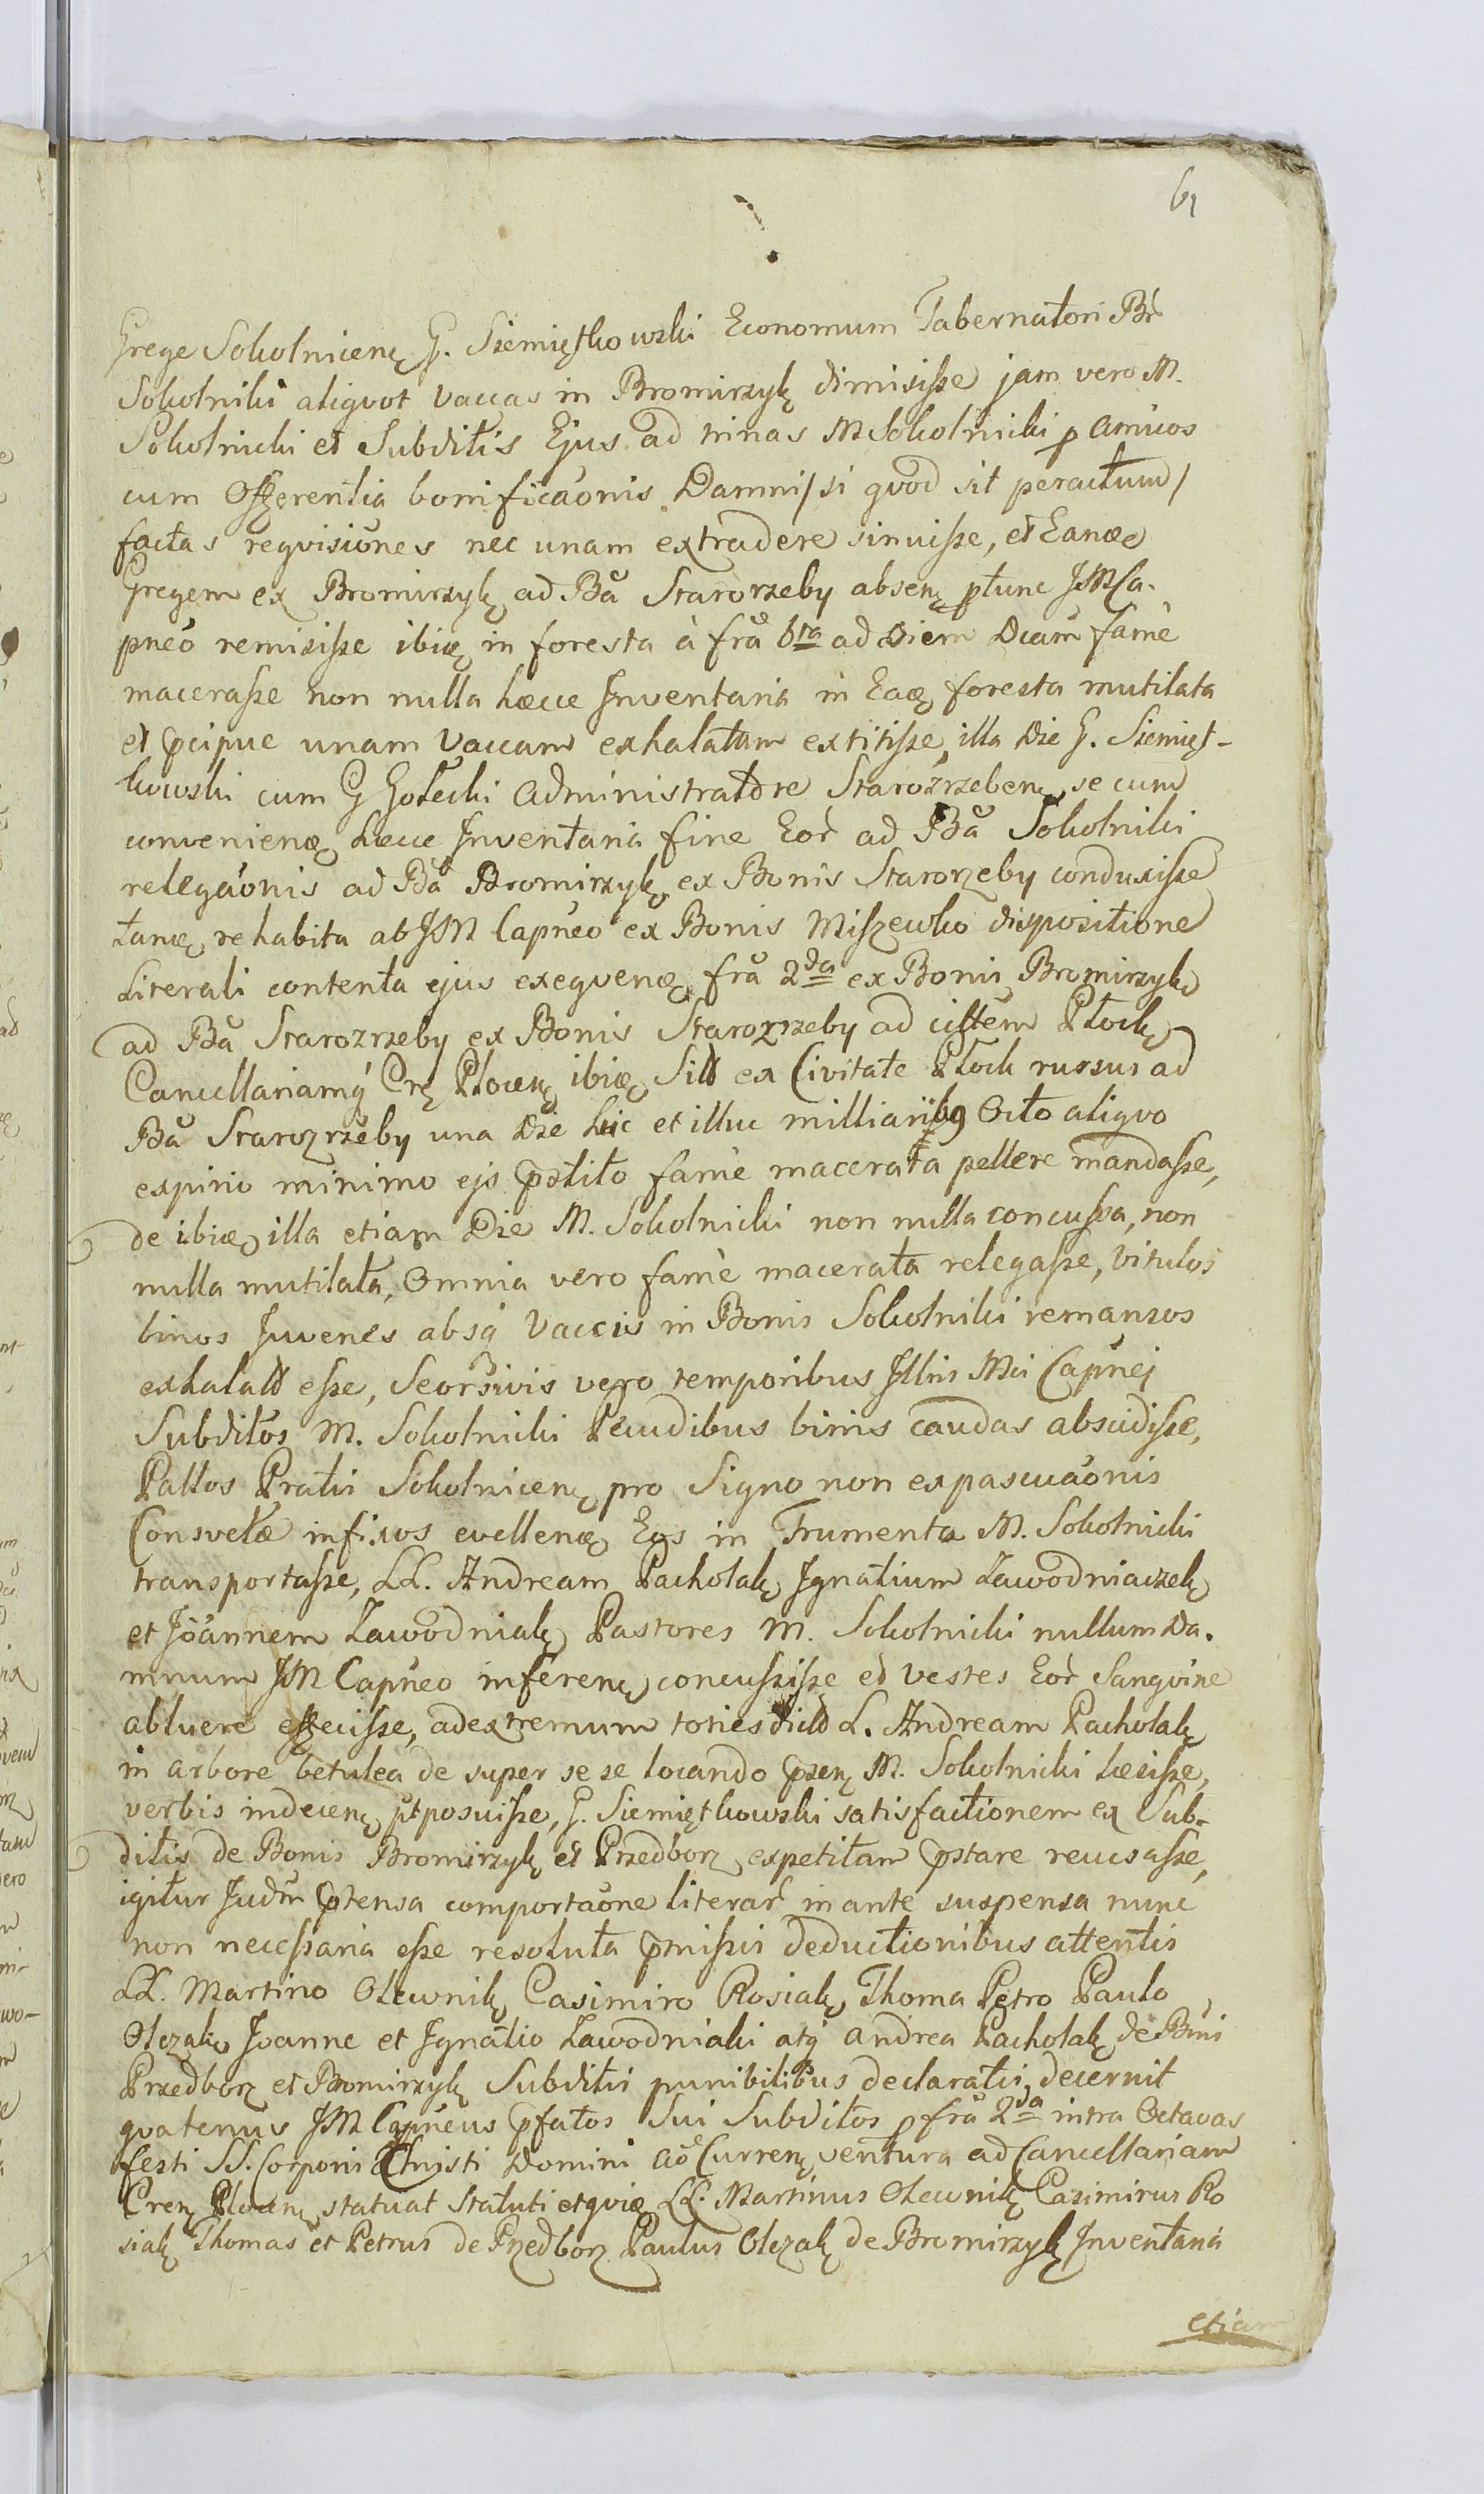 61
Grege Sokolnicen G. Siemiętkowski Economum Tabernatori Br
Sokolniki aliqvot Vaccas in Bromirzyk dimisisse jam vero M.
Sokolnicki et Subditis Ejus ad trinas M Sokolnicki p Amicos
cum Offerentia bonificaonis Damni / si qvod sit peractum /
factas reqvisiones nec unam extradere sinuisse, et Eandē
Gregem ex Bromirzyk ad Ba Starorzeby absen ptunc JMCa-
pneo remisisse ibid in foresta à fra 6ta ad Diem Dcam fame
macerasse non nulla hæcce Inventaria in Ead foresta mutilata
et pcipue unam Vaccam exhalatam extitisse, illa Die G. Siemięt-
kowski cum G Gołecki Administratore Starozrzeben, se cum
convenien hæcce Inventaria fine Eor ad Ba Sokolniki
relegaonis ad Ba Bromirzyk ex Bonis Starorzeby conduxisse
tand rehabita ab JM Capneo ex Bonis Miszewko dispositione
Literali contenta ejus exeqvend fra 2da ex Bonis Bromirzyk
ad Ba Starozrzeby ex Bonis Starozrzeby ad cittem Płock
Cancellariamq Cr Plocen ibid Sitt ex Civitate Płock russus ad
Ba Starozrzeby una Die hic et illuc milliaribus Octo aliqvo
expirio minimo ejs pstito fame macerata pellere mandasse,
de ibid illa etiam Die M. Sokolnicki non nulla concussa, non
nulla mutilata, Omnia vero fame macerata relegasse, Vitulos
binos Juvenes absq Vaccis in Bonis Sokolniki remansos
exhalatt esse, Seorsivis vero temporibus Illris Mci Capnei
Subditos M. Sokolnicki Pecudibus binis caudas abscidisse,
Pallos Pratis Sokolnicen pro Signo non expascuaonis
Consvetæ infixos evellend Eos in Frumenta M. Sokolnicki
transportasse, LL. Andream Pacholak Ignatium Zawodniaczek
et Joannem Zawodniak Pastores M. Sokolnicki nullum Da-
mnum JM Capneo inferen concussisse et Vestes Eor Sangvine
abluere effecisse, ad extremum toties dictt L. Andream Pacholak
in arbore betulea de super se se locando psen M. Sokolnicki læsisse,
verbis indecen ptposuisse, G. Siemiętkowski satisfactionem ex Sub-
ditis de Bonis Bromirzyk et Przedborz expetitam pstare recusasse,
igitur Judm ptensa comportaone literar in ante suspensa nunc
non necessaria esse resoluta pmissis deductionibus attentis
LL. Martino Olewnik Casimiro Rosiak, Thoma Petro Paulo
Olczak, Joanne et Ignatio Zawodniaki atq Andrea Pacholak de Bnis
Przedborz et Bromirzyk Subditis punibilibus declaratis, decernit
qvatenus JM Capneus pfatos Sui Subditos p fra 2da intra Octavas
festi SS. Corporis Christi Domini ao Curren ventura ad Cancellariam
Cren Plocen statuat Statuti etqvid LL. Martinus Olewnik Casimirus Ro
siak Thomas et Petrus de Przedborz Paulus Olczak de Bromirzyk Inventaria
etiam